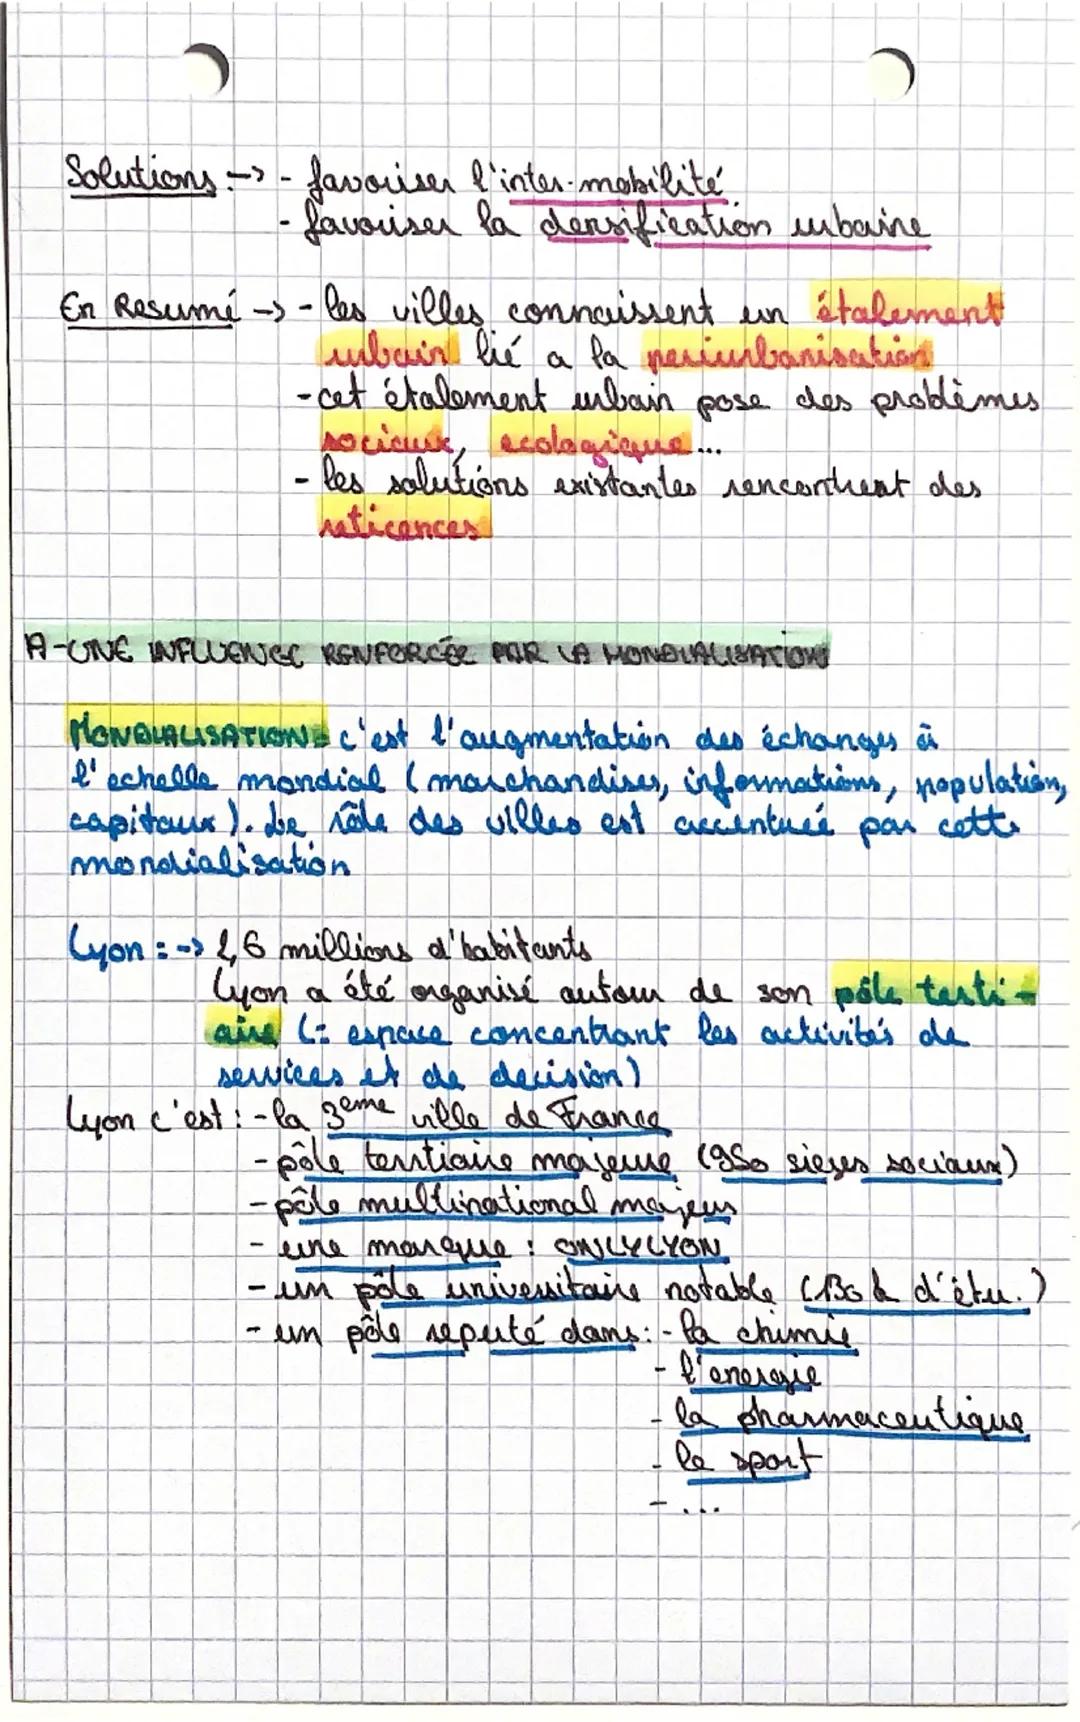 Solutions :-> - favoriser l'inter-mobilité
- favoriser la densification urbaine
En Resumé -> - les villes connaissent un étalement
urbain lié a la periurbanisation
- cet étalement urbain pose des problèmes
sociaux, ecologique...
- les solutions existantes rencontrent des
réticences
A - UNE INFLUENCE RENFORCÉE PAR LA MONDIALISATION
MONDIALISATION = c'est l'augmentation des échanges à
l'echelle mondial (marchandises, informations, population,
capitaux). Le rôle des villes est accentuée par cette
mondialisation
Lyon : -> 2,6 millions d'habitants
Lyon a été organisé autour de son pôle terti-
aire (= espace concentrant les activités de
services et de decision)
Lyon c'est : - la 3eme ville de France
- pôle tertiaire majeure (950 sieges sociaux)
- pôle multinational majeur
- une marque : ONLYLYON
- un pôle universitaire notable (130 k d'étu.)
- un pôle reputé dans : - la chimie
- l'energie
- la pharmaceutique
- le sport
- ...